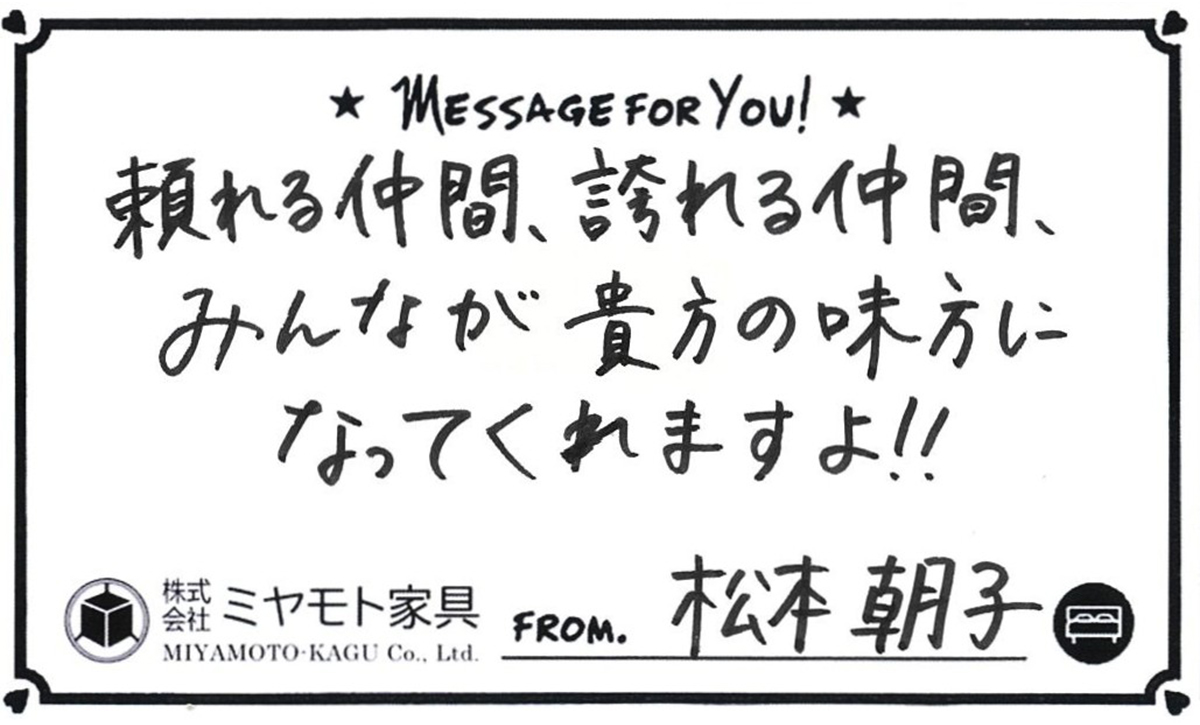 ★ MESSAGE FOR YOU! ★
頼れる仲間、誇れる仲間、
みんなが貴方の味方に
なってくれますよ!!
株式会社 ミヤモト家具
MIYAMOTO-KAGU Co., Ltd.
FROM. 松本朝子